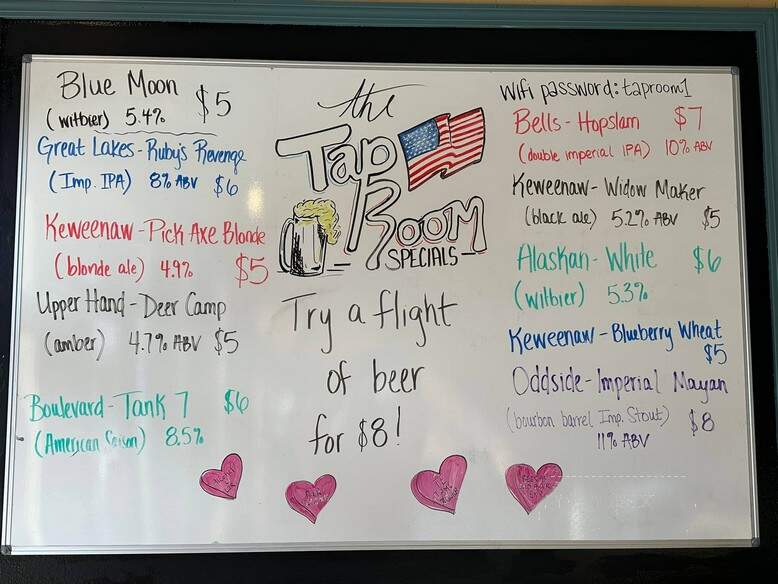 Blue Moon
(witbier) 5.4% $5
Great Lakes - Ruby's Revenge
(Imp. IPA) 8% ABV $6
Keweenaw - Pick Axe Blonde
(blonde ale) 4.9% $5
Upper Hand - Deer Camp
(amber) 4.7% ABV $5
Boulevard - Tank 7 $6
(American Saison) 8.5%
the
Tap
Room
SPECIALS
Try a flight
of beer
for $8!
Wifi password: taproom1
Bells - Hopslam $7
(double imperial IPA) 10% ABV
Keweenaw - Widow Maker
(black ale) 5.2% ABV $5
Alaskan - White $6
(witbier) 5.3%
Keweenaw - Blueberry Wheat
$5
Oddside - Imperial Mayan
(bourbon barrel Imp. Stout) $8
11% ABV